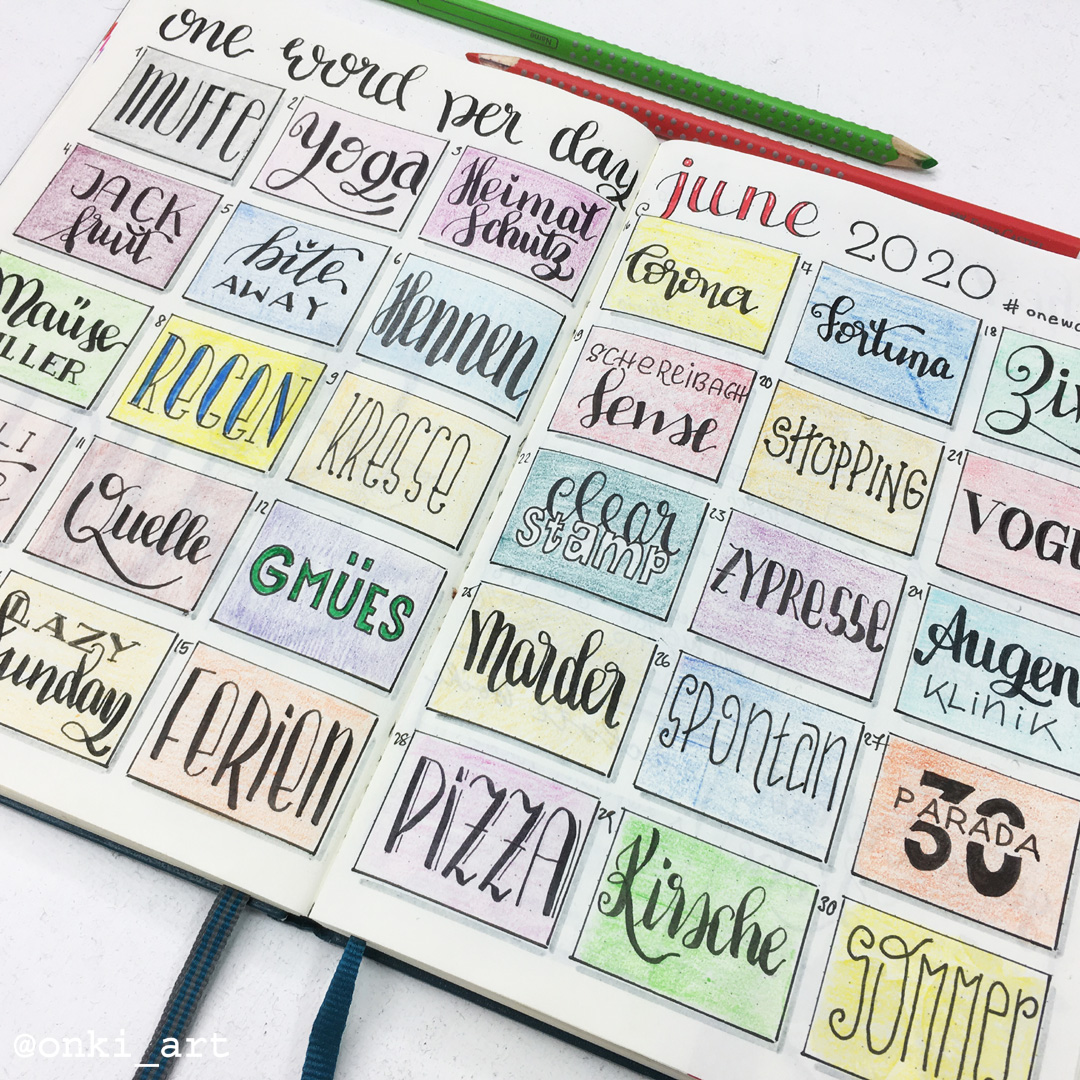 one word per day
1
MUFFE
2
Yoga
3
Heimat
Schutz
4
JACK
fruit
5
bite
AWAY
6
Hennen
Mäuse
ILLER
8
REGEN
9
KRESSE
LI
11
Quelle
12
GMÜES
LAZY
Sunday
15
FERIEN
june 2020
# onewo
16
Corona
17
Fortuna
18
Zir
19
SCHEREIBAGH
Sense
20
SHOPPING
21
VOGU
22
clear
stamp
23
ZYPRESSE
24
Augen
KLINIK
25
Marder
26
SPONTAN
27
30
PARADA
28
PIZZA
29
Kirsche
30
SOMMER
New
@onki_art